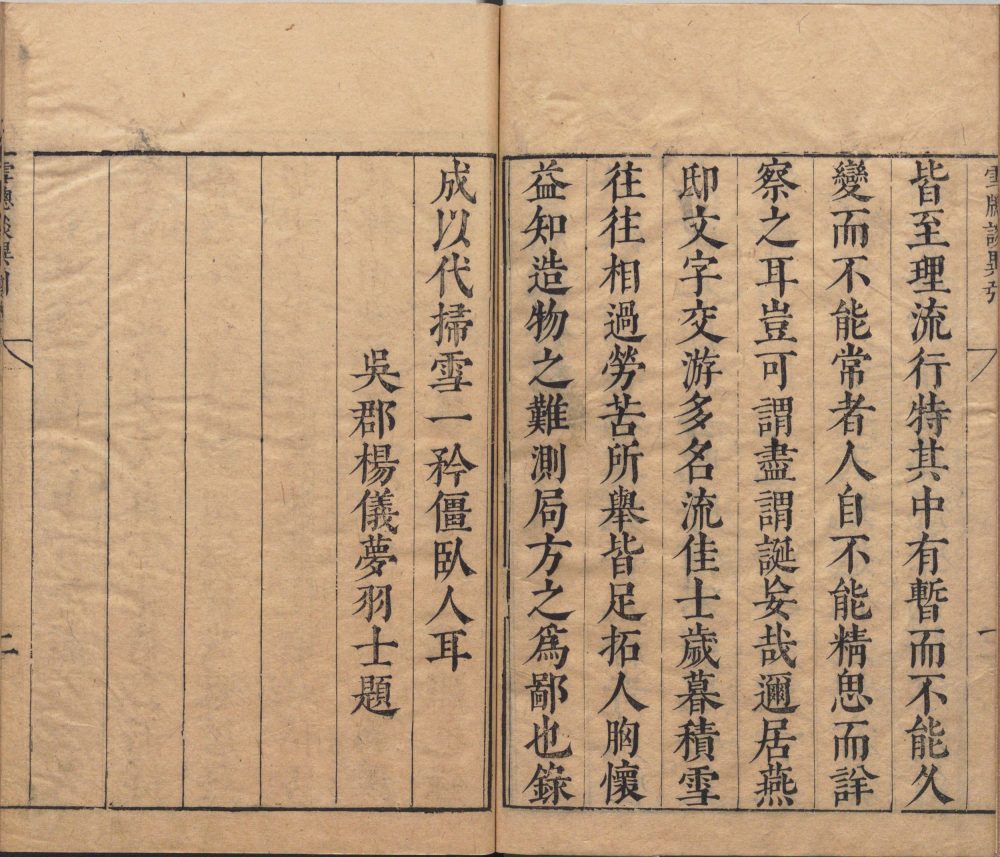 雪牕談異引
一
皆至理流行特其中有暫而不能久
變而不能常者人自不能精思而詳
察之耳豈可謂盡謂誕妄哉邇居燕
邸文字交游多名流佳士歲暮積雪
往往相過勞苦所舉皆足拓人胸懷
益知造物之難測局方之爲鄙也錄
成以代掃雪一矜僵臥人耳
吳郡楊儀夢羽士題
雪牕談異引
二